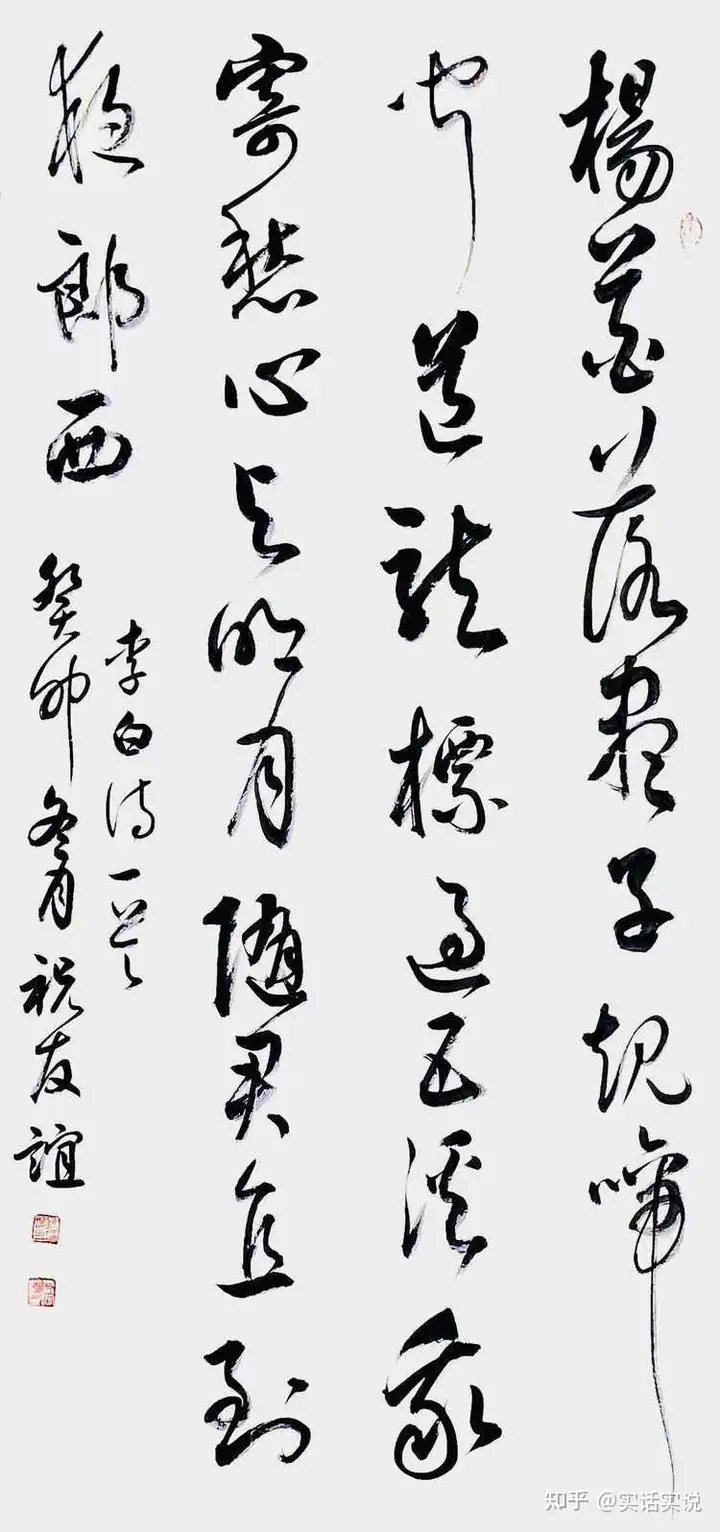 楊花落盡子規啼
聞道龍標過五溪我
寄愁心与明月隨君直到
夜郎西
李白诗一首
癸卯冬月祝友誼
知乎 @实话实说